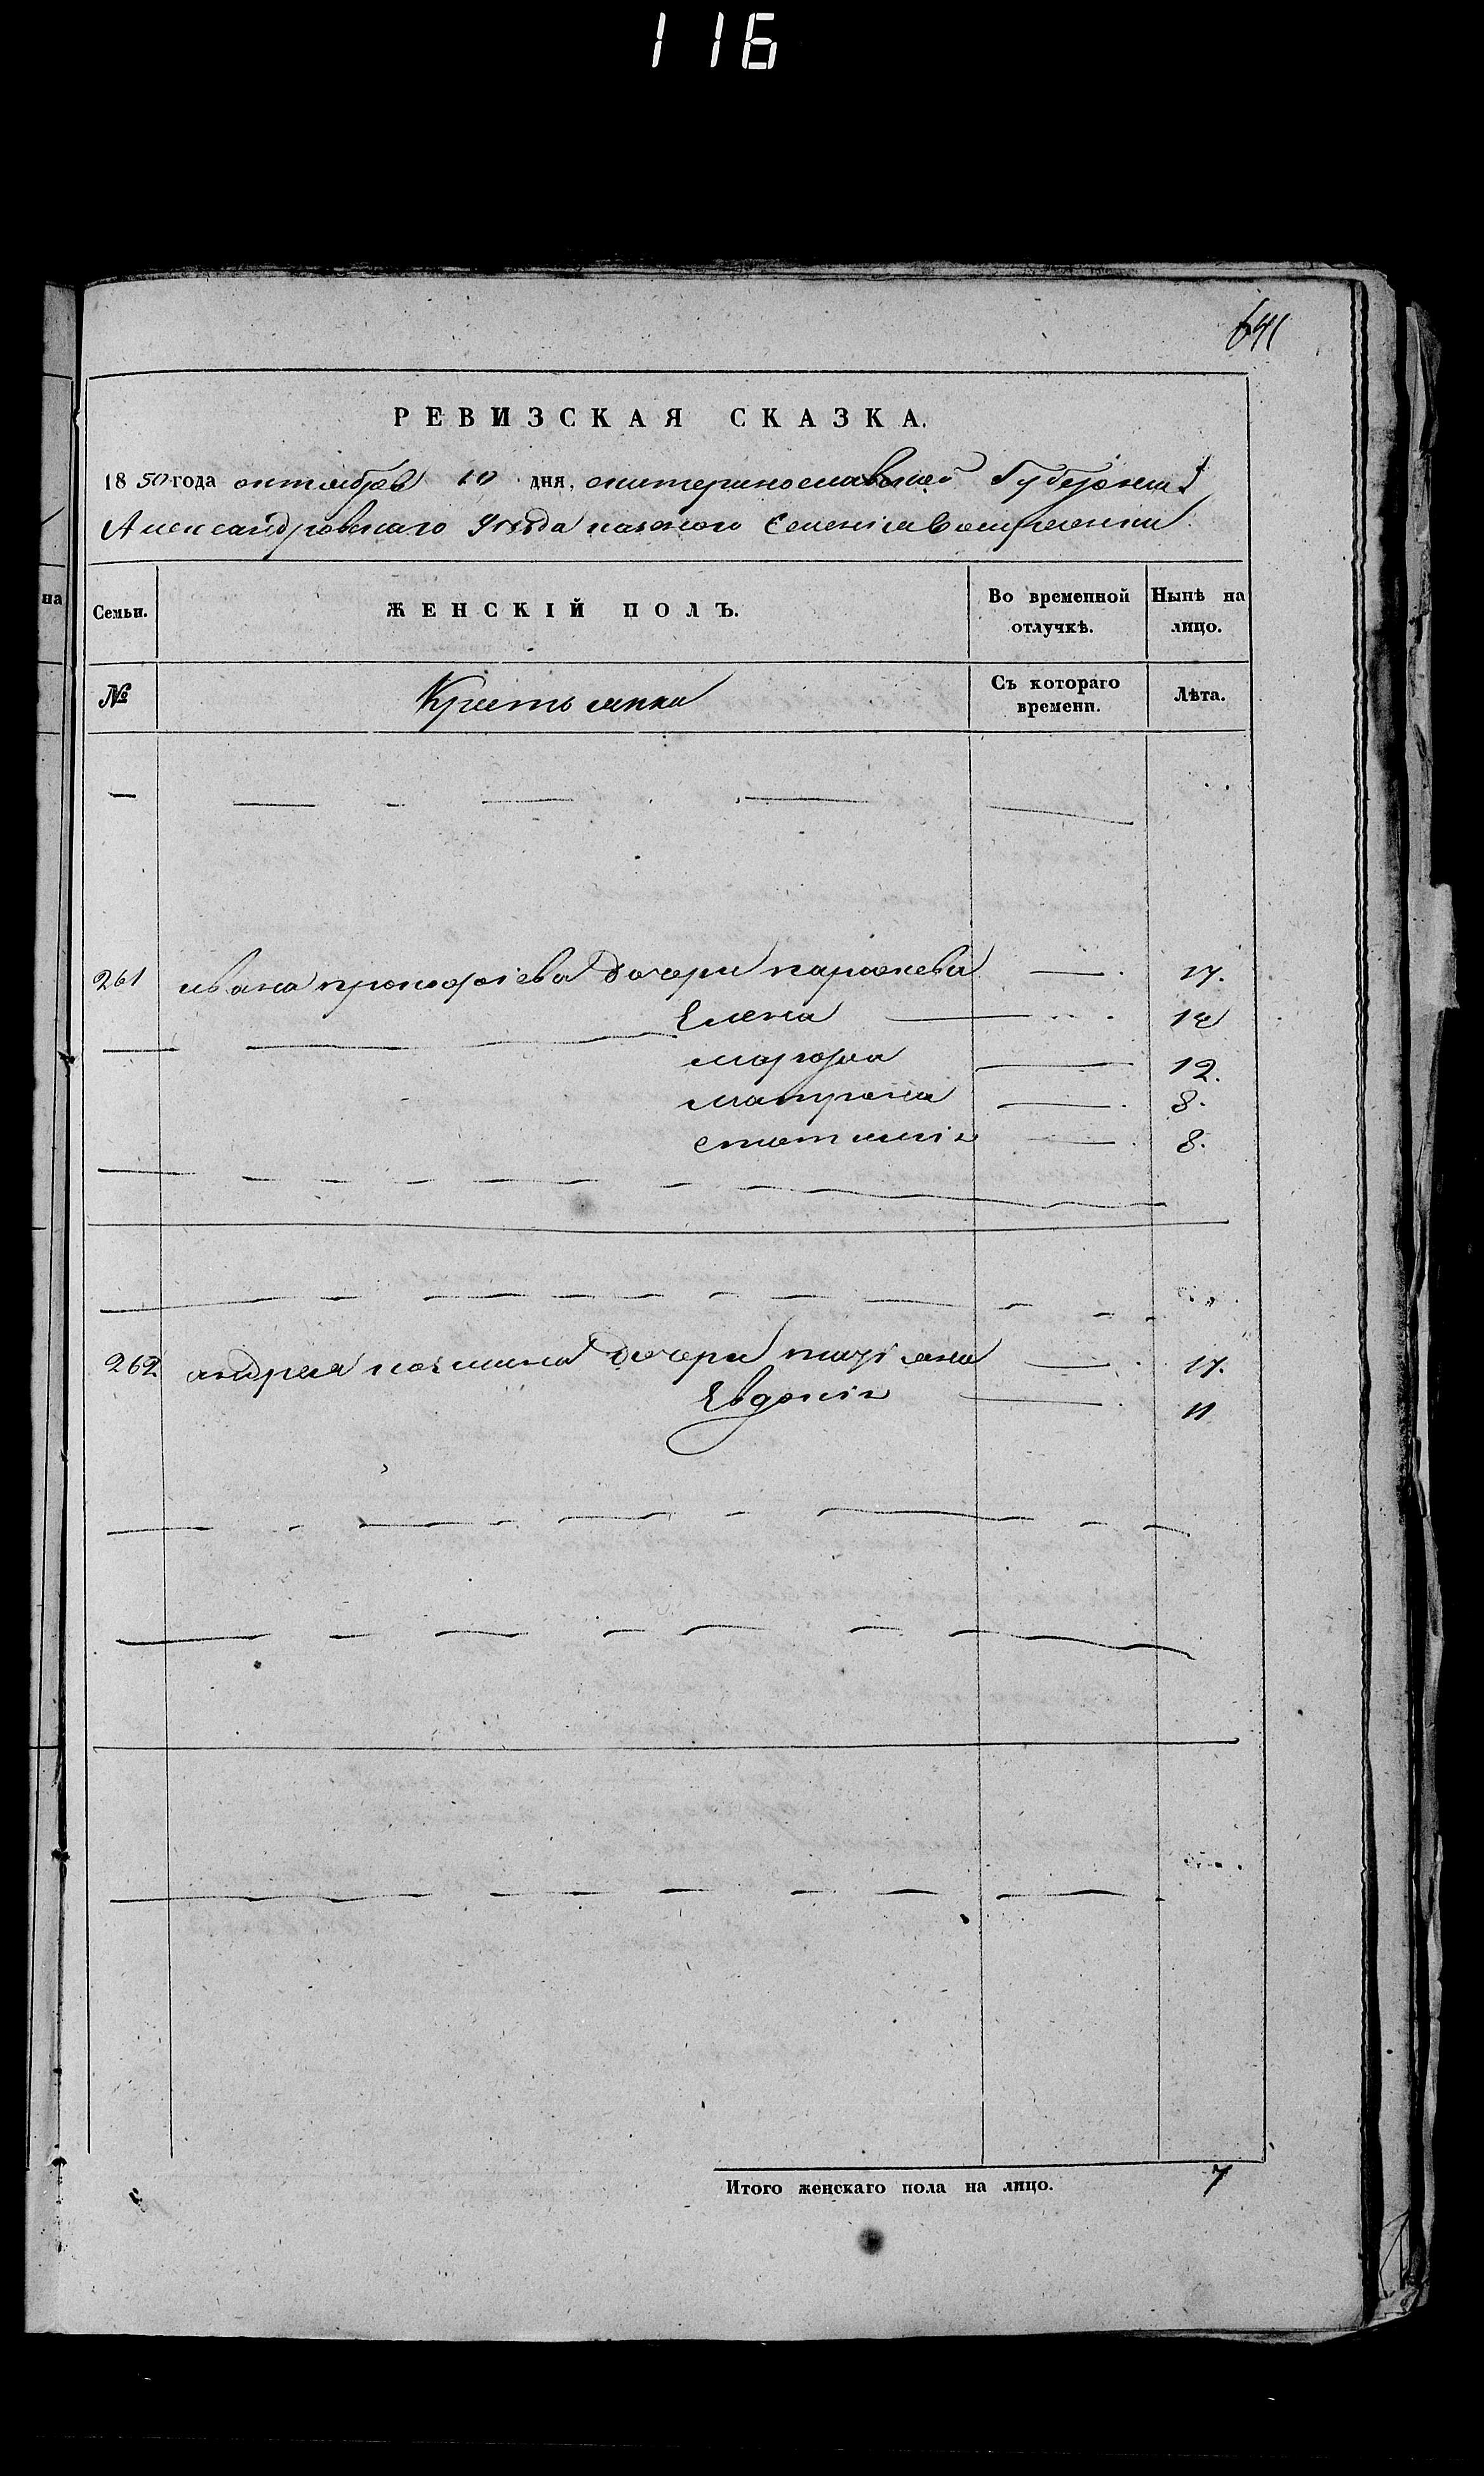 116
641
РЕВИЗСКАЯ СКАЗКА.
1850 года октября 10 дня, екатеринославской Губернии
Александровскаго Уезда казеного Селения
на
Семьи. ЖЕНСКІЙ ПОЛЪ. Во временной отлучкѣ. Нынѣ на лицо.
№ Крестьянки Съ котораго времени. Лѣта.
261 ивана прокофіева дочери параскева 17.
Елена
марфа 12.
матрона 8.
8.
262 андрея козмина дочери татіана 17.
Евдокія 11
Итого женскаго пола на лицо. 7